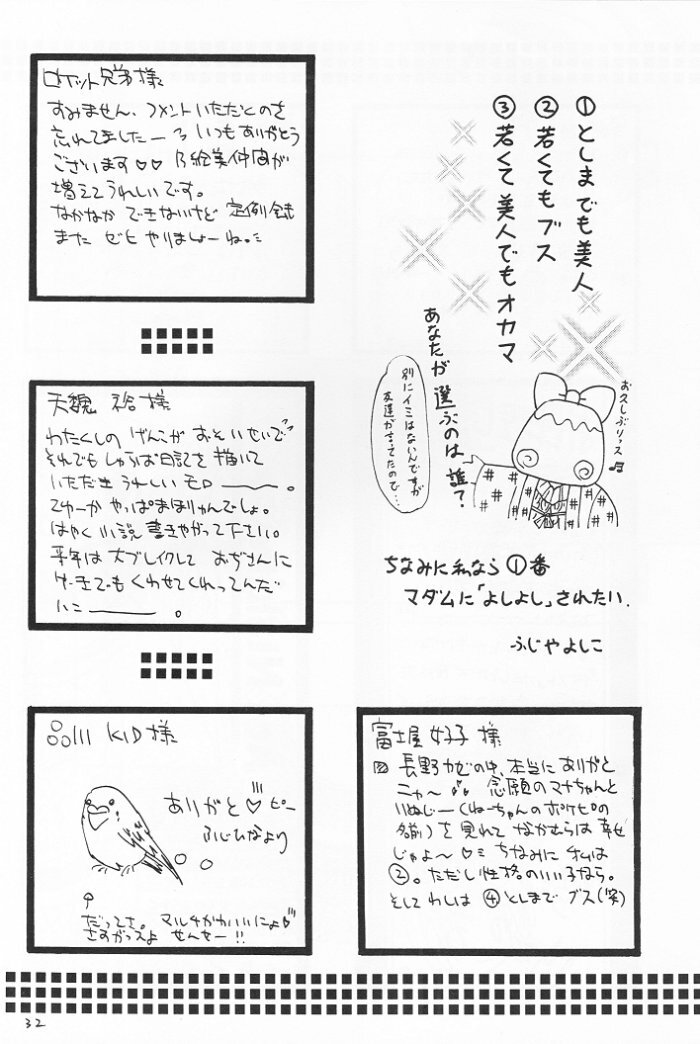 ①としまでも美人
②若くてもブス
③若くて美人でもオカマ
あなたが選ぶのは誰?
別にイミはないんですが
友達が言ってたので…
お久しぶりっス♫
ちなみに私なら①番
マダムに「よしよし」されたい.
ふじやよしこ
ロケット兄弟様
すみません、コメントいただくのを
忘れてましたー いつもありがとう
ございます♡♡ 絵美仲間が
増えてうれしいです。
なかなか できないけど 定例
また ゼヒ やりましょーね。
天魂 裕 様
わたくしの げんこが おそいせいで
それでもしゃるぱ日記を描いて
いただき うれしい モロ――。
てゆーか やっぱまほりゅんでしょ。
はやく小説書きやがって下さい。
来年は大ブレイクして おぢさんに
ケーキでも くわせてくれってんだ
い――。
品川 KID 様
ありがと♡ピー
ふじひなより
だってさ。マルチかわいいにょ
さすがっスよ せんせー!!
富士屋好子 様
長野カゼの中、本当にありがと
ニャ〜 念願のマナちゃんと
いぬじー(ねーちゃんのポケピの
名前)を見れて なかむらは 幸せ
じゃよ〜♡ ちなみに 私は
②。ただし性格のいい子なら。
そしてわしは ④としまで ブス(笑)
32